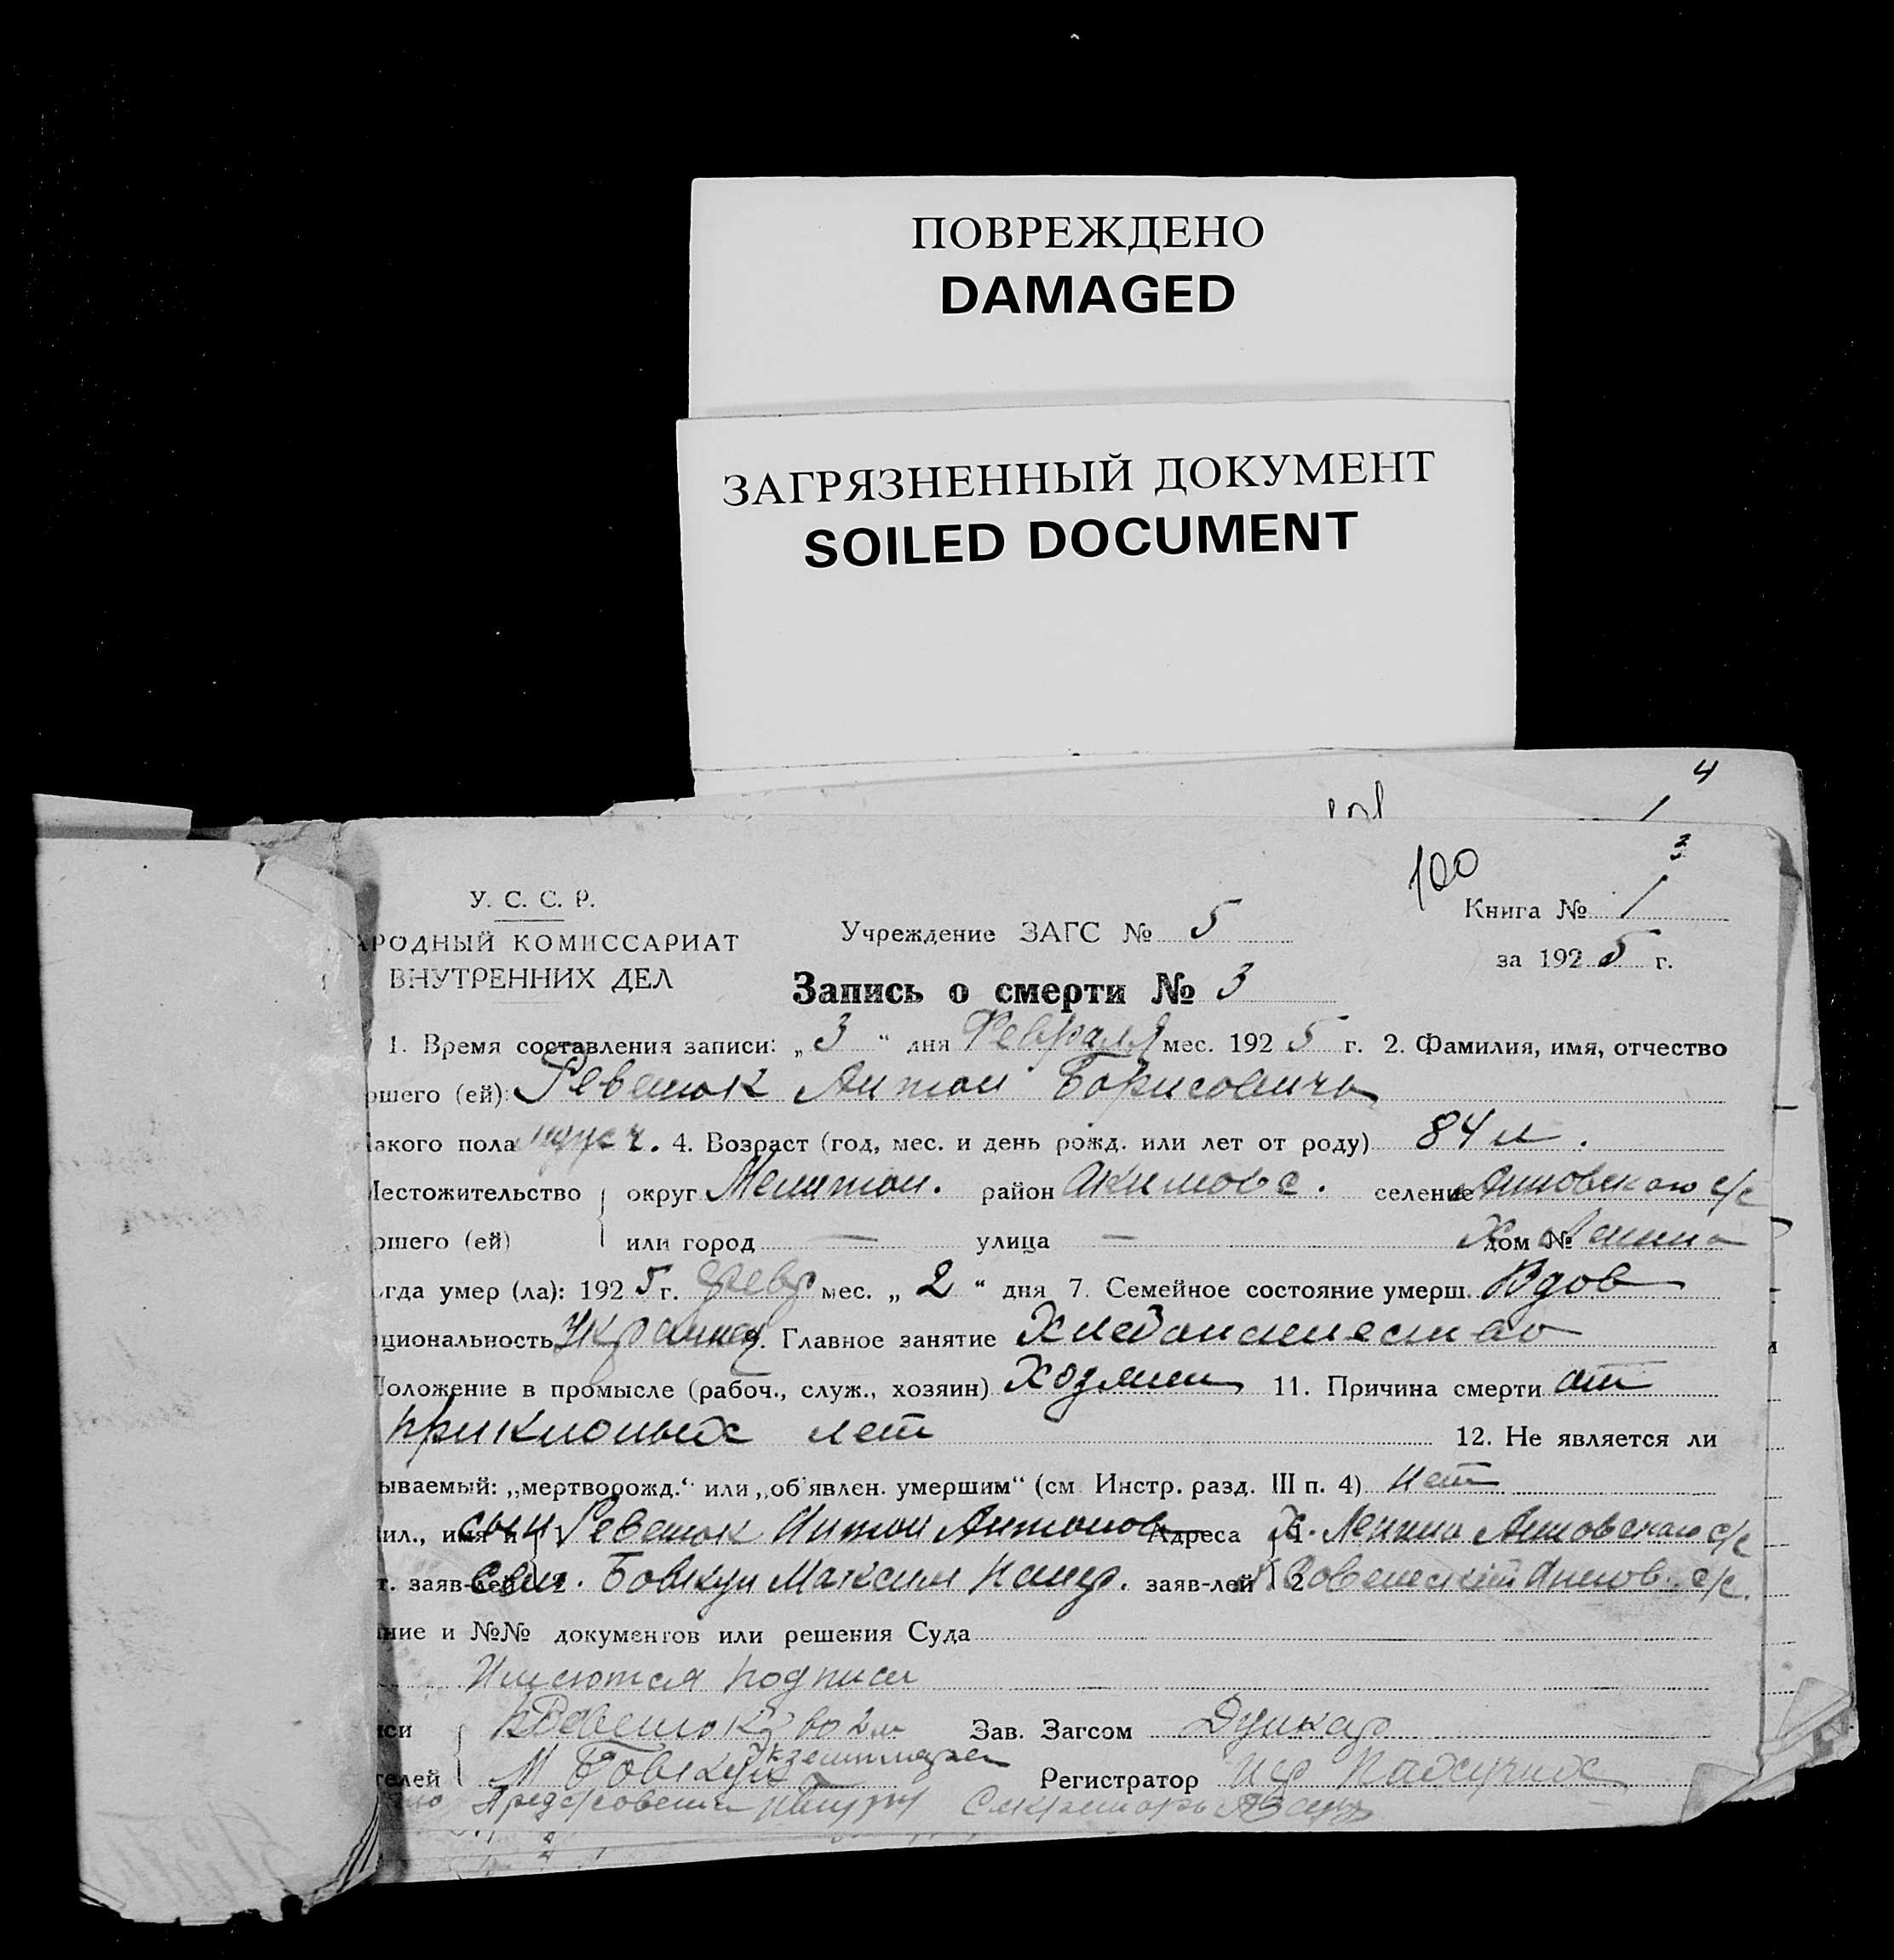 ПОВРЕЖДЕНО
DAMAGED
ЗАГРЯЗНЕННЫЙ ДОКУМЕНТ
SOILED DOCUMENT
4
1
100
3
У. С. С. Р.
РОДНЫЙ КОМИССАРИАТ
ВНУТРЕННИХ ДЕЛ
Учреждение ЗАГС № 5
Книга № 1
за 1925 г.
Запись о смерти № 3
1. Время составления записи: „3“ дня Февраля мес. 1925 г. 2. Фамилия, имя, отчество
ршего (ей): Ревенюк Антон Борисович
акого пола мужч. 4. Возраст (год, мес. и день рожд. или лет от роду) 84 л.
Местожительство округ Мелитоп. район Акимовс. селение с/с
ршего (ей) или город — улица — дом № Х. Ленина
огда умер (ла): 1925 г. февр мес. „2“ дня 7. Семейное состояние умерш. Вдов
циональность Украинец 9. Главное занятие Хлебопашество
Положение в промысле (рабоч., служ., хозяин) Хозяин 11. Причина смерти от
приклоных лет
12. Не является ли
ываемый: „мертворожд.“ или „об'явлен. умершим“ (см. Инстр. разд. III п. 4) нет
ил., имя и 1 сын Ревенюк Антон Антонов Адреса 1 Х. Ленина с/с
т. заяв-лей 2 Бовкун Максим заяв-лей 2 с/с.
ние и №№ документов или решения Суда
Имеются подписи
си Ревенюк во 2м Зав. Загсом
экземпляре
телей М Бовкун Регистратор
Секретарь